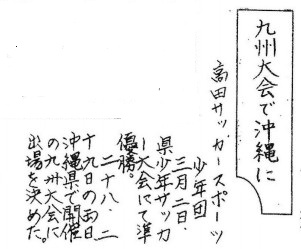 九州大会で沖縄に
高田サッカースポーツ
少年団
三月二日・
県少年サッカ
ー大会にて準
優勝。
二十八、二
十九日の両日、
沖縄県で開催
の九州大会に
出場を決めた。